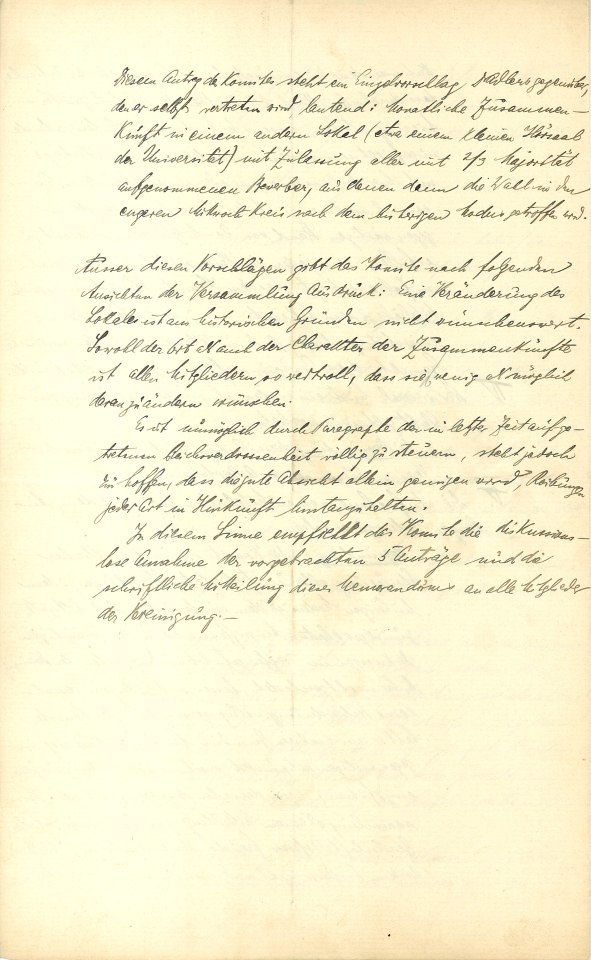 Diesem Antrag des Komites steht ein Einzelvorschlag D Adlers gegenüber,
den er selbst vertreten wird lautend: Monatliche Zusammen-
kunft in einem andern Lokal (etwa einem kleinen Hörsaal
der Universität) mit Zulassung aller mit 2/3 Majorität
aufgenommenen Bewerber, aus denen dann die Wahl in den
engeren Mittwoch Kreis nach dem bisherigen Modus getroffen wird.
Ausser diesen Vorschlägen gibt das Komite noch folgenden
Ansichten der Versammlung Ausdruck: Eine Veränderung des
Lokales ist aus historischen Gründen nicht wünschenswert.
Sowohl der Ort als auch der Charakter der Zusammenkünfte
ist allen Mitgliedern so wertvoll, dass sie wenig als möglich
daran zu ändern wünschen.
Es ist unmöglich durch Paragraphe der in letzter Zeit aufge-
tretenen verdrossenheit völlig zu steuern, steht jedoch
zu hoffen, dass die gute Absicht allein genügen wird, Reibungen
jeder Art in Hinkunft hintanzuhalten.
In diesem Sinne empfiehlt das Komite die diskussions-
lose Annahme der vorgebrachten 5 Anträge und die
schriftliche Mitteilung dieses Memorandums an alle Mitglieder
der Vereinigung.—